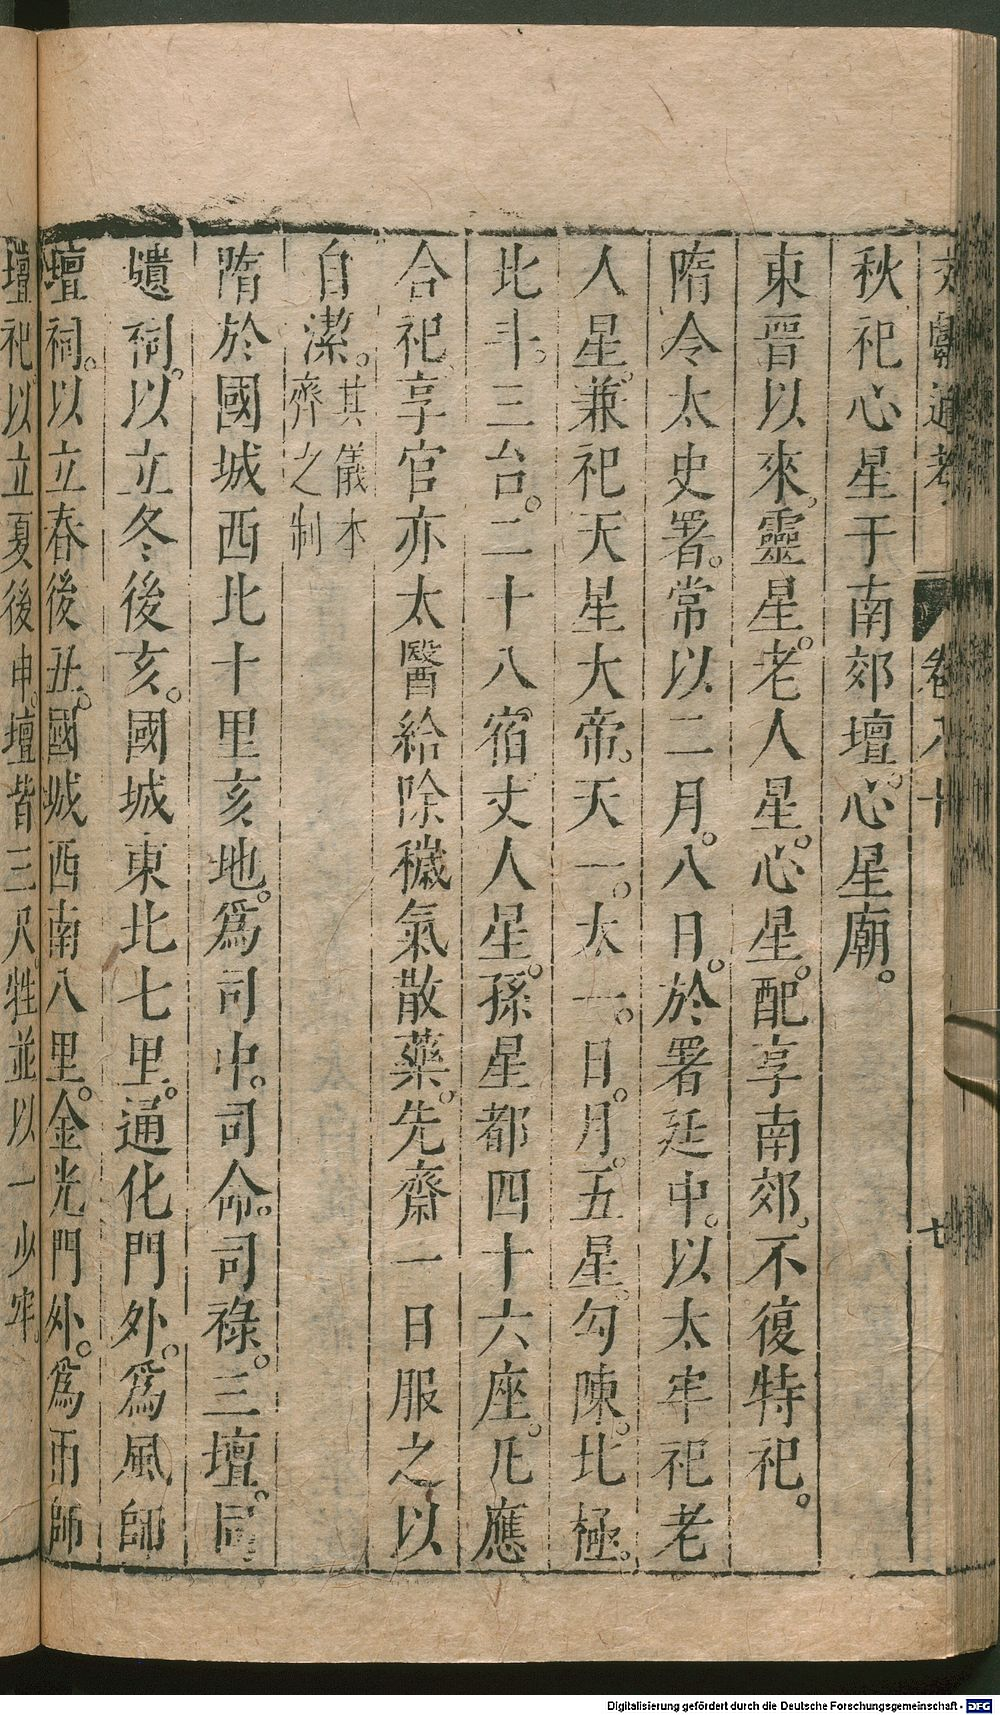 文獻通考 卷八十 七
秋祀心星于南郊壇。心星廟。
東晋以來。靈星。老人星。心星。配享南郊。不復特祀。
隋令太史署。常以二月。八日。於署廷中。以太牢祀老
人星。兼祀天星大帝。天一。太一。日。月。五星。勾陳。北極。
北斗。三台。二十八宿。丈人星。孫星都四十六座。凡應
合祀。享官亦太醫給除穢氣散藥。先齋一日服之以
自潔。其儀本
齊之制
隋於國城西北十里亥地。爲司中。司命。司祿。三壇。同
壝祠。以立冬後亥。國城東北七里。通化門外。爲風師
壇祠。以立春後丑。國城西南八里。金光門外。爲雨師
壇祀。以立夏後申。壇皆三尺。牲並以一少牢。
Digitalisierung gefördert durch die Deutsche Forschungsgemeinschaft - DFG